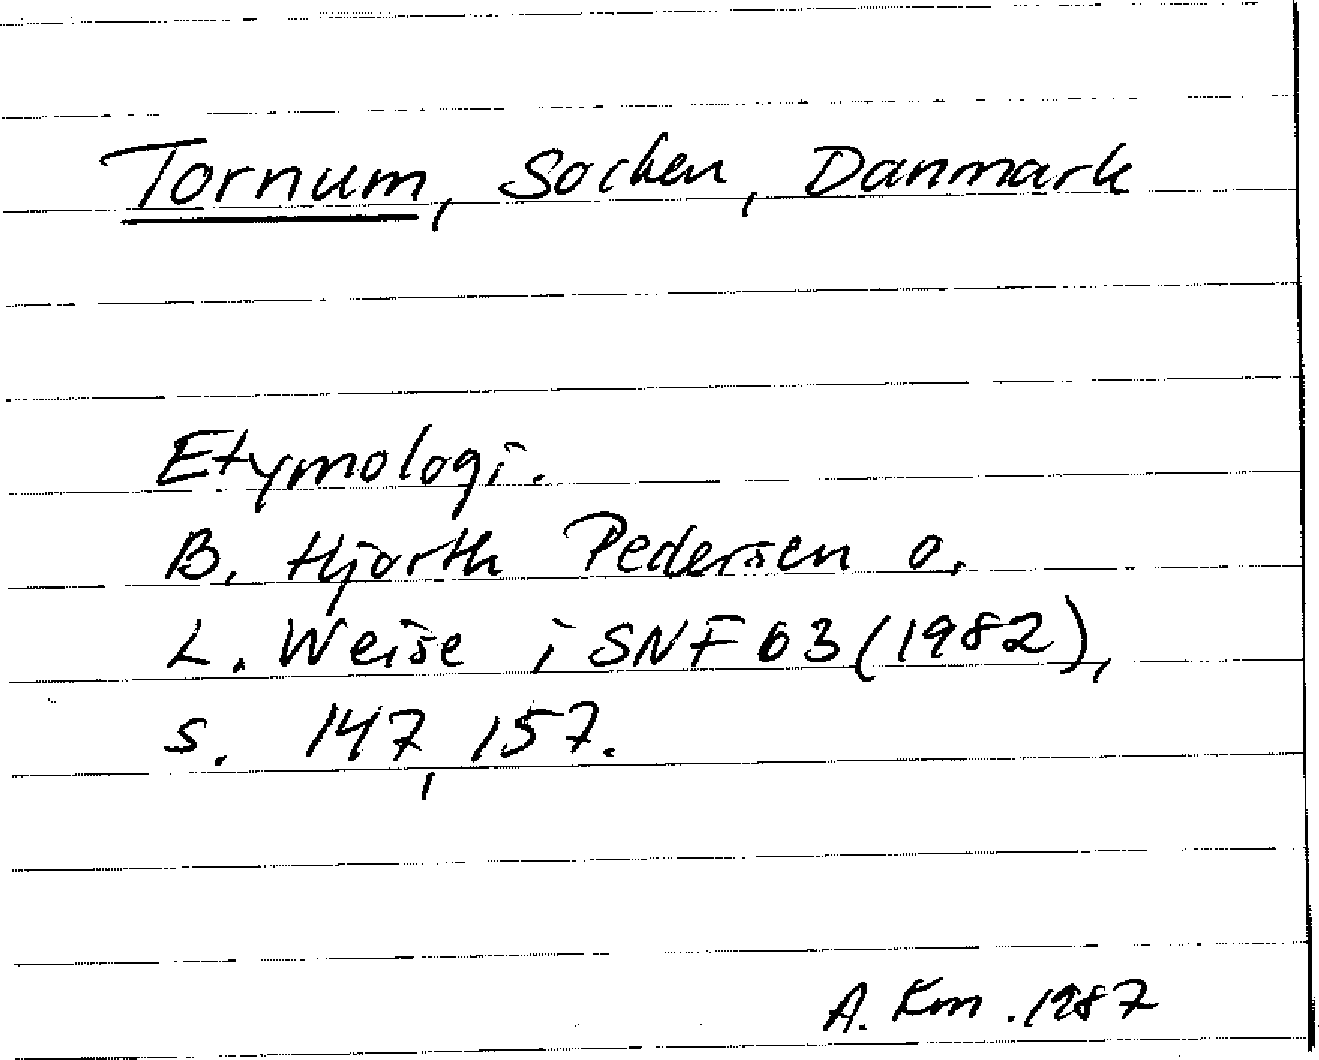 Tornum, Socken, Danmark
Etymologi.
B. Hjorth Pedersen o.
L. Weise i SNF 63 (1982),
s. 147, 157.
A. Km. 1987